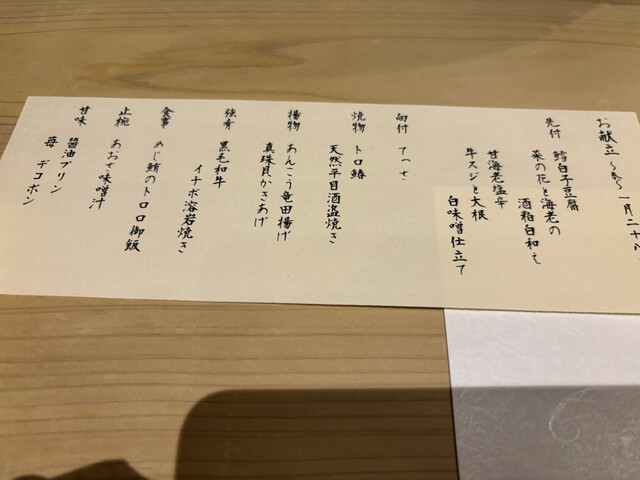 お献立 〜参〜 一月二十八
先付 鱈白子豆腐
菜の花と海老の
酒粕白和え
甘海老塩辛
牛スジと大根
白味噌仕立て
向付 てっさ
焼物 トロ鰆
天然平目酒盗焼き
揚物 あんこう竜田揚げ
真珠貝かきあげ
強肴 黒毛和牛
イチボ溶岩焼き
食事 めじ鮪のトロロ御飯
止椀 あおさ味噌汁
甘味 醤油プリン
苺 デコポン